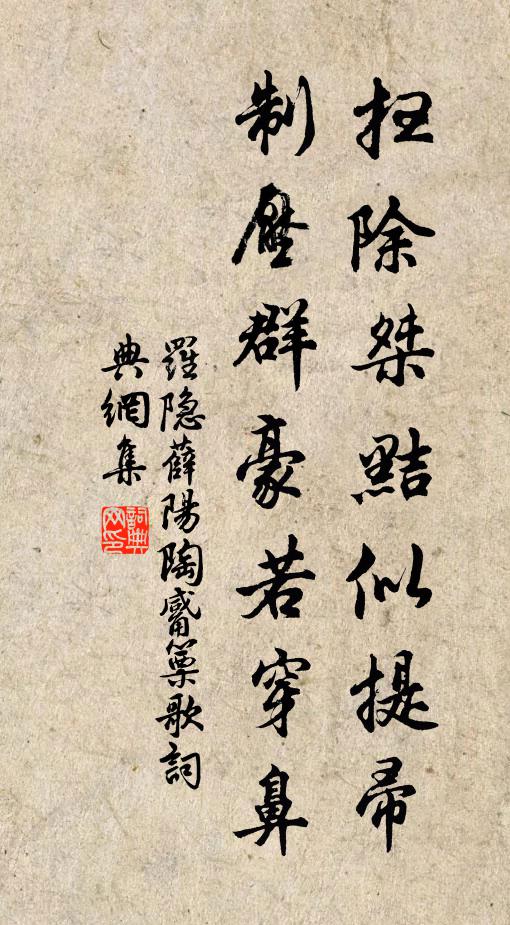 扫除桀黠似提帚
制压群豪若穿鼻
罗隐薛阳陶觱篥歌词
典网集
词典网印